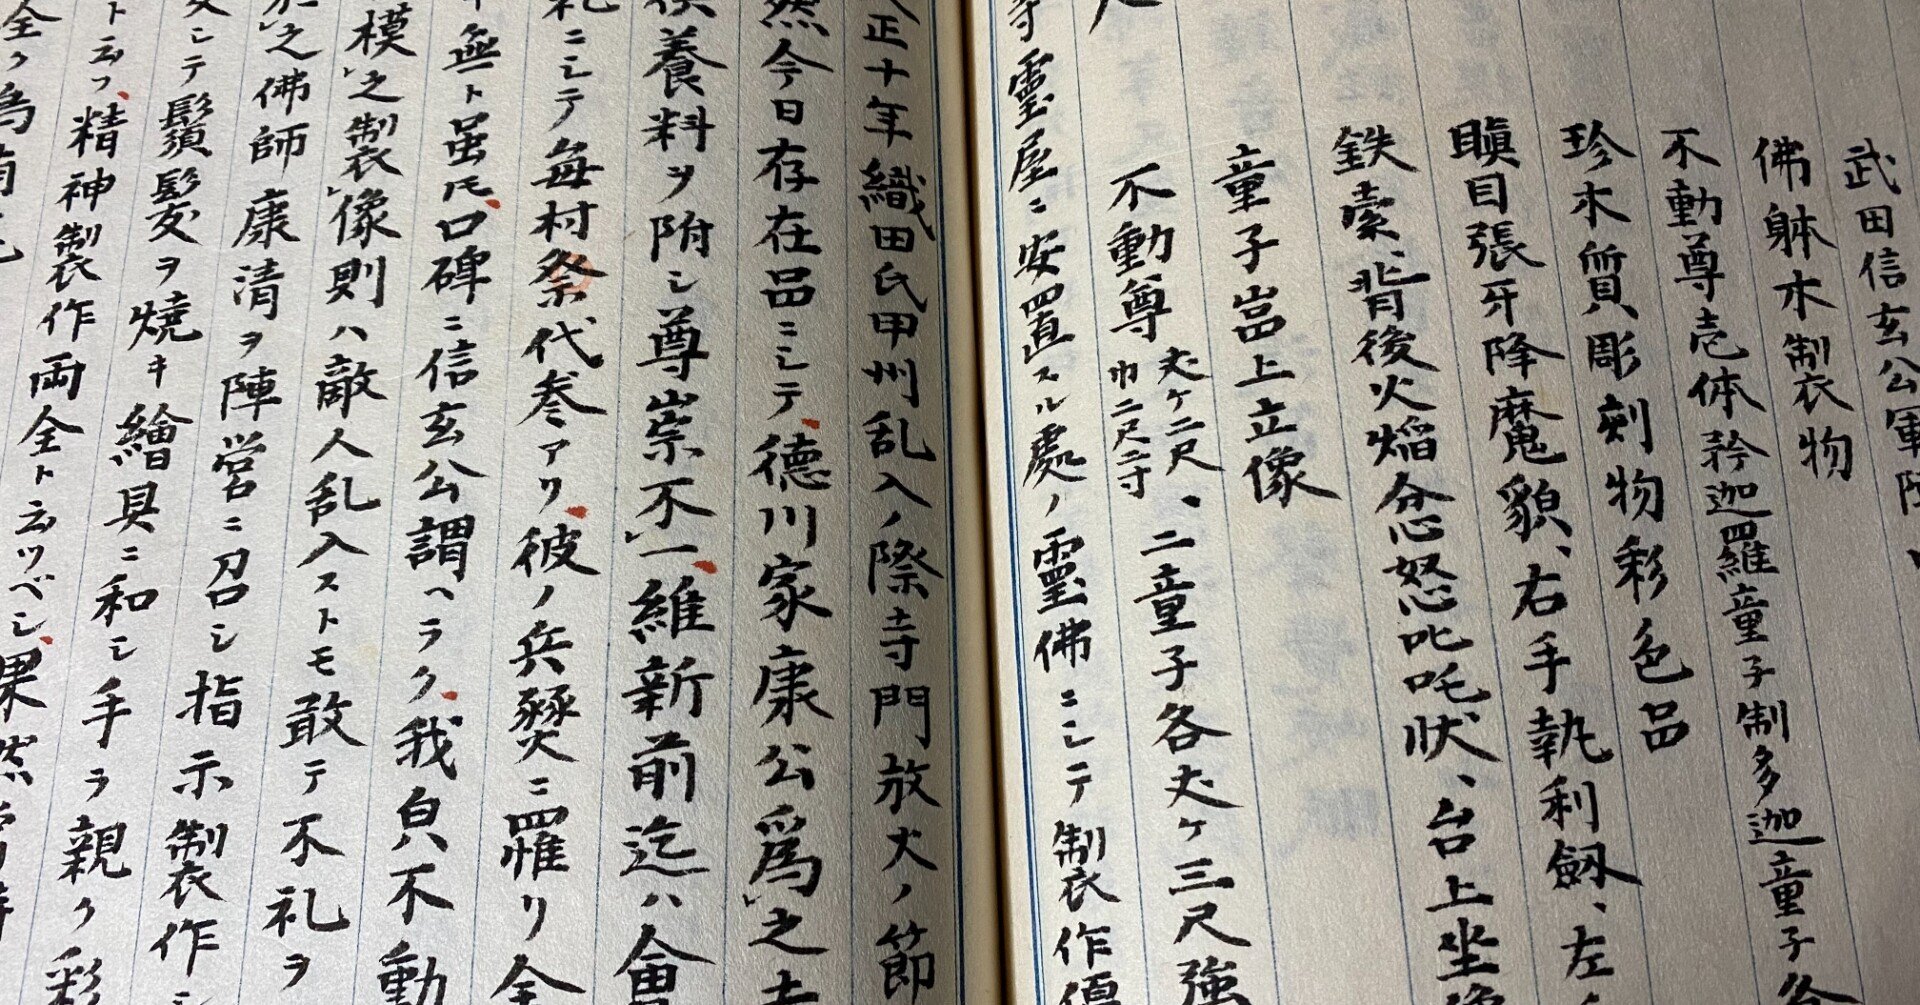 武田信玄公軍陣
佛躰木製物
不動尊壱体矜迦羅童子制多迦童子各
珍木質彫刻物彩色品
瞋目張牙降魔貌、右手執利劔、左
鉄索、背後火焔忿怒叱吒状、台上坐像
童子嵓上立像
不動尊丈ケ二尺巾二尺二寸、二童子各丈ケ三尺強
寺靈屋ニ安置スル處ノ靈佛ニシテ製作優
正十年織田氏甲州乱入ノ際寺門放火ノ節
然今日存在品ニシテ、德川家康公爲之
養料ヲ附シ尊崇不一、維新前迄ハ
礼ニシテ毎村祭代参アリ、彼ノ兵燹ニ罹リ全
無ト虽モ、口碑ニ信玄公謂ヘラク、我皃不動
模之製像則ハ敵人乱入ストモ敢テ不礼ヲ
之佛師康清ヲ陣営ニ召シ指示製作シ
シテ鬚髪ヲ焼キ繪具ニ和シ手ラ親ク彩
ト云フ、精神製作両全ト云ツベシ、果然
全ク為